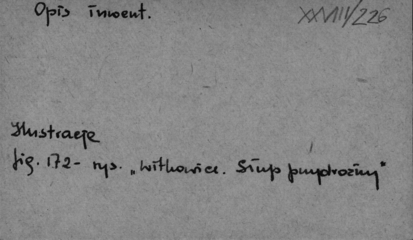 Opis inwent.
XXVIII/226
Ilustracje
fig. 172 - rys. „Witkowice. Słup przydrożny"